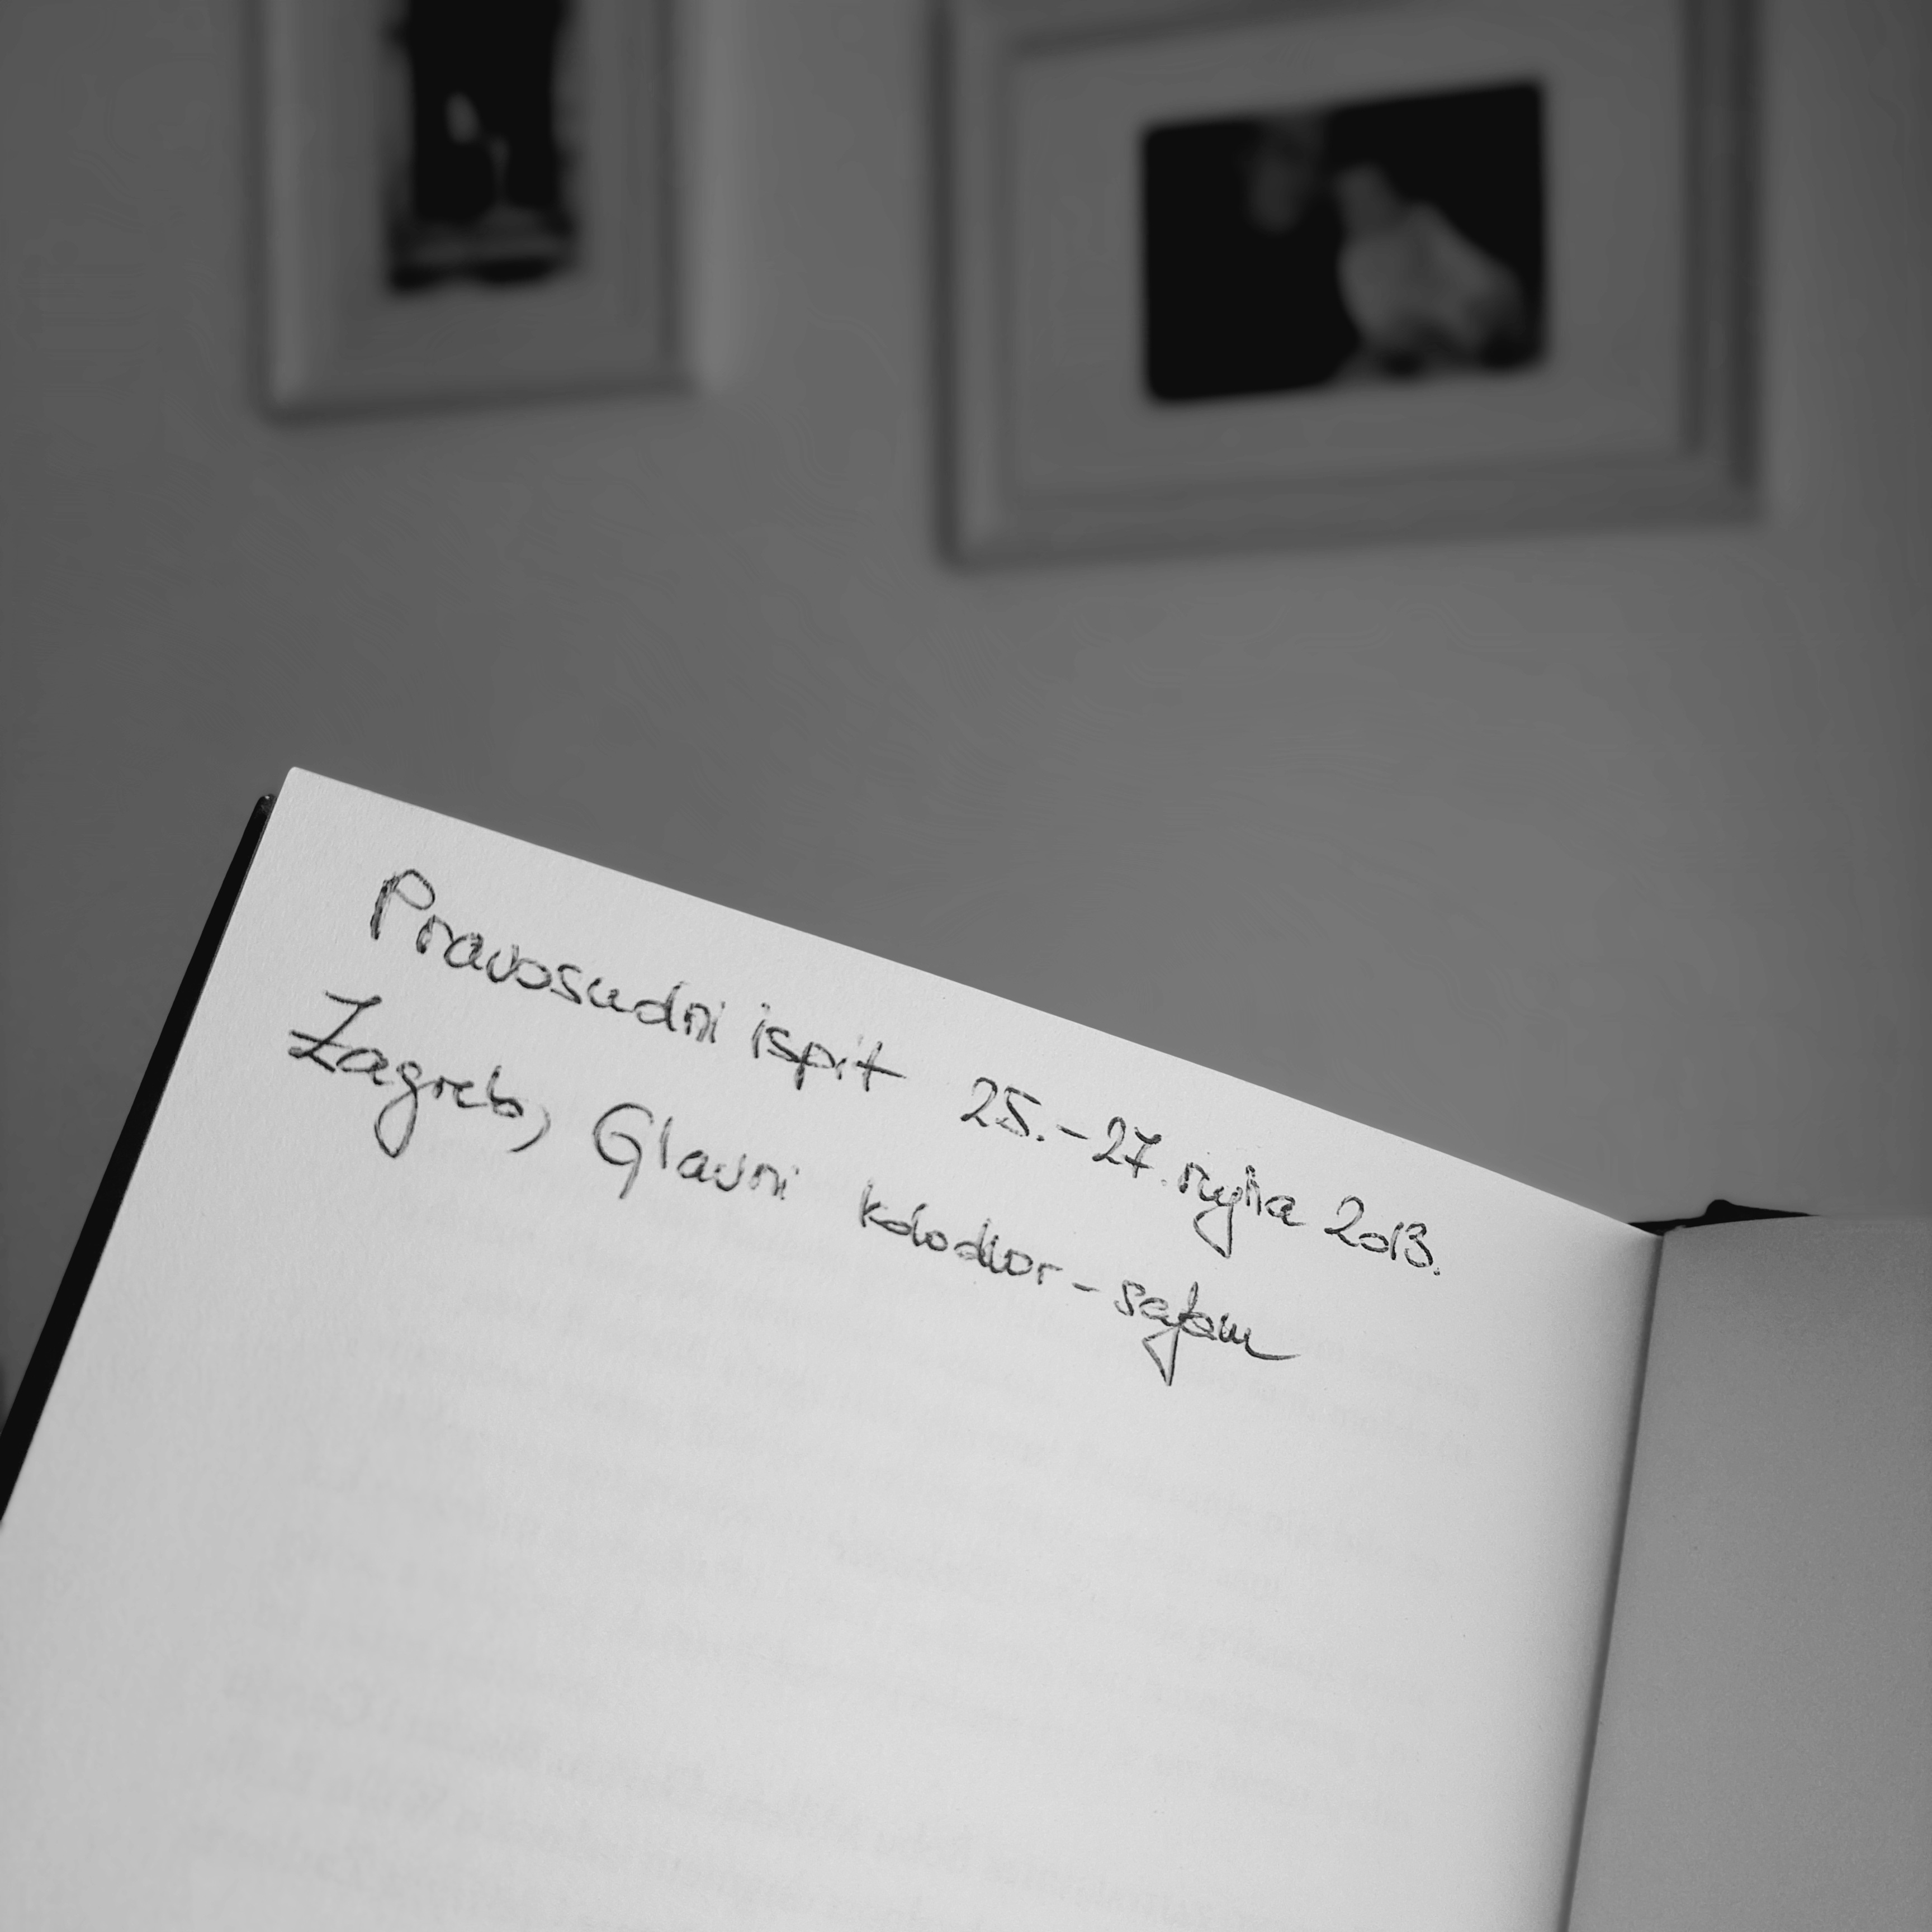 Pravosudni ispit 25.-27. rujna 2013.
Zagreb, Glavni kolodvor - sajam